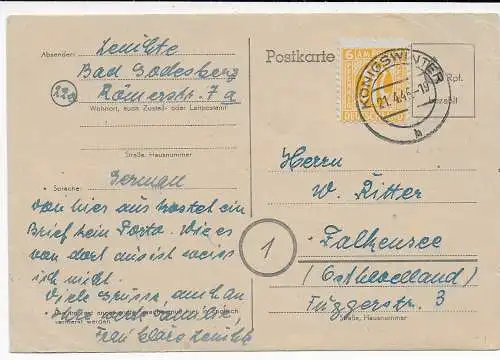 Absender: Lenikte
Bad Godesberg
22a Römerstr. 7a
Wohnort, auch Zustell- oder Leitpostamt
Straße, Hausnummer
Sprache: German
von hier aus kostet ein
Brief kein Porto. Wie es
von dort aus ist weiss
ich nicht.
Viele Grüsse, auch an
Frau
Postkarte
KÖNIGSWINTER
21.4.46.-19
b
Rpf.
bezahlt
Herrn
W. Ritter
1
Falkensee
(Osthavelland)
Fuggerstr. 3
Straße, Hausnummer